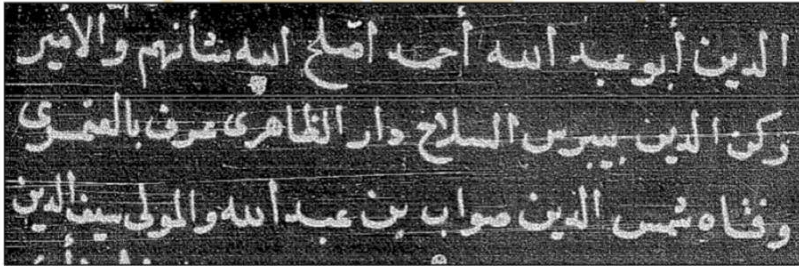 الدين أبو عبد الله أحمد اصلح الله شأنهم والأمير
ركن الدين بيبرس السلاح دار الظاهرى عرف بالقيمرى
وفتاه شمس الدين صواب بن عبد الله والمولى سيف الدين